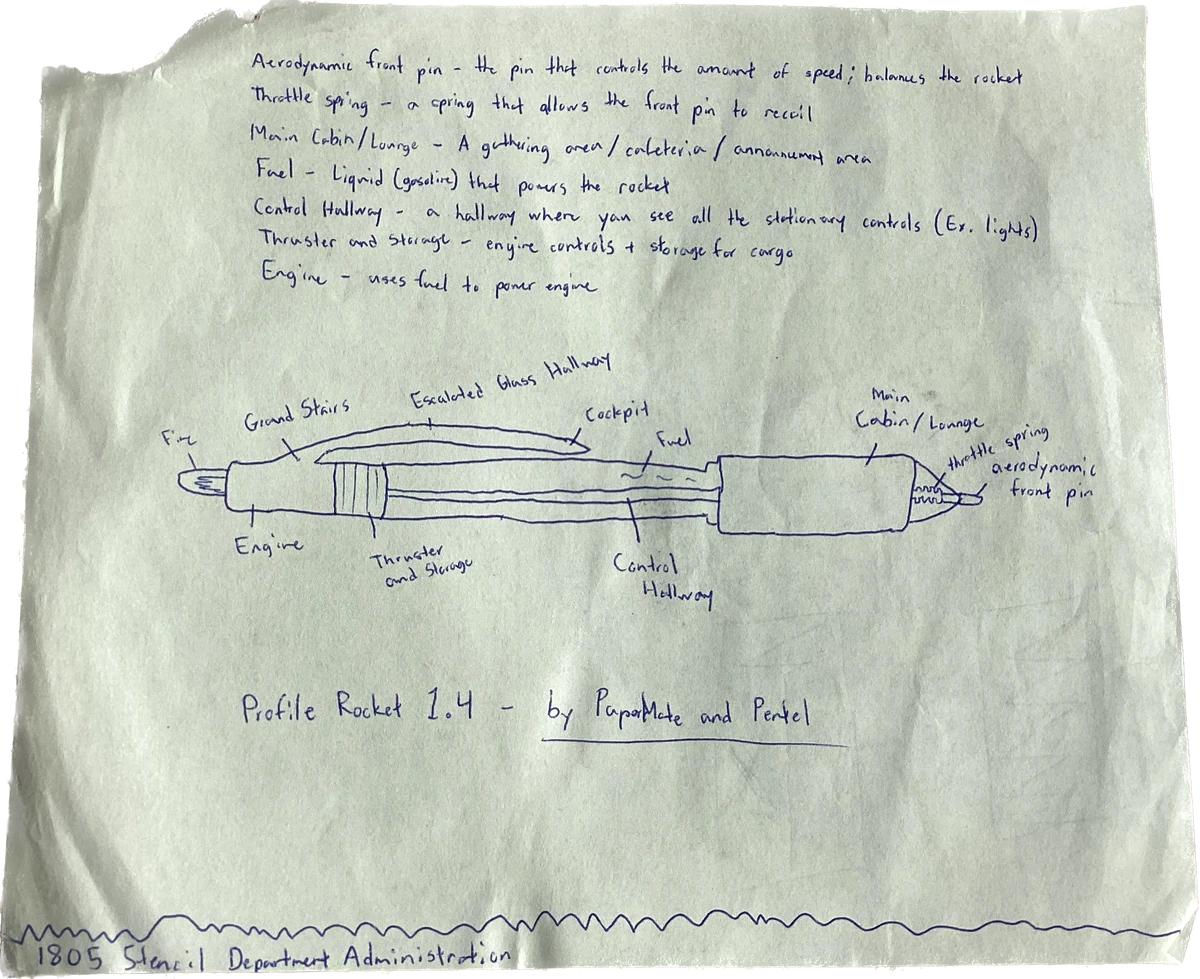 Aerodynamic front pin - the pin that controls the amount of speed; balances the rocket
Throttle spring - a spring that allows the front pin to recoil
Main Cabin/Lounge - A gathering area/cafeteria/announcement area
Fuel - Liquid (gasoline) that powers the rocket
Control Hallway - a hallway where you see all the stationary controls (Ex. lights)
Thruster and Storage - engine controls + storage for cargo
Engine - uses fuel to power engine
Fire
Ground Stairs
Escalated Glass Hallway
Cockpit
Fuel
Main
Cabin/Lounge
throttle spring
aerodynamic
front pin
Engine
Thruster
and Storage
Control
Hallway
Profile Rocket 1.4 - by PaperMate and Pentel
1805 Stencil Department Administration